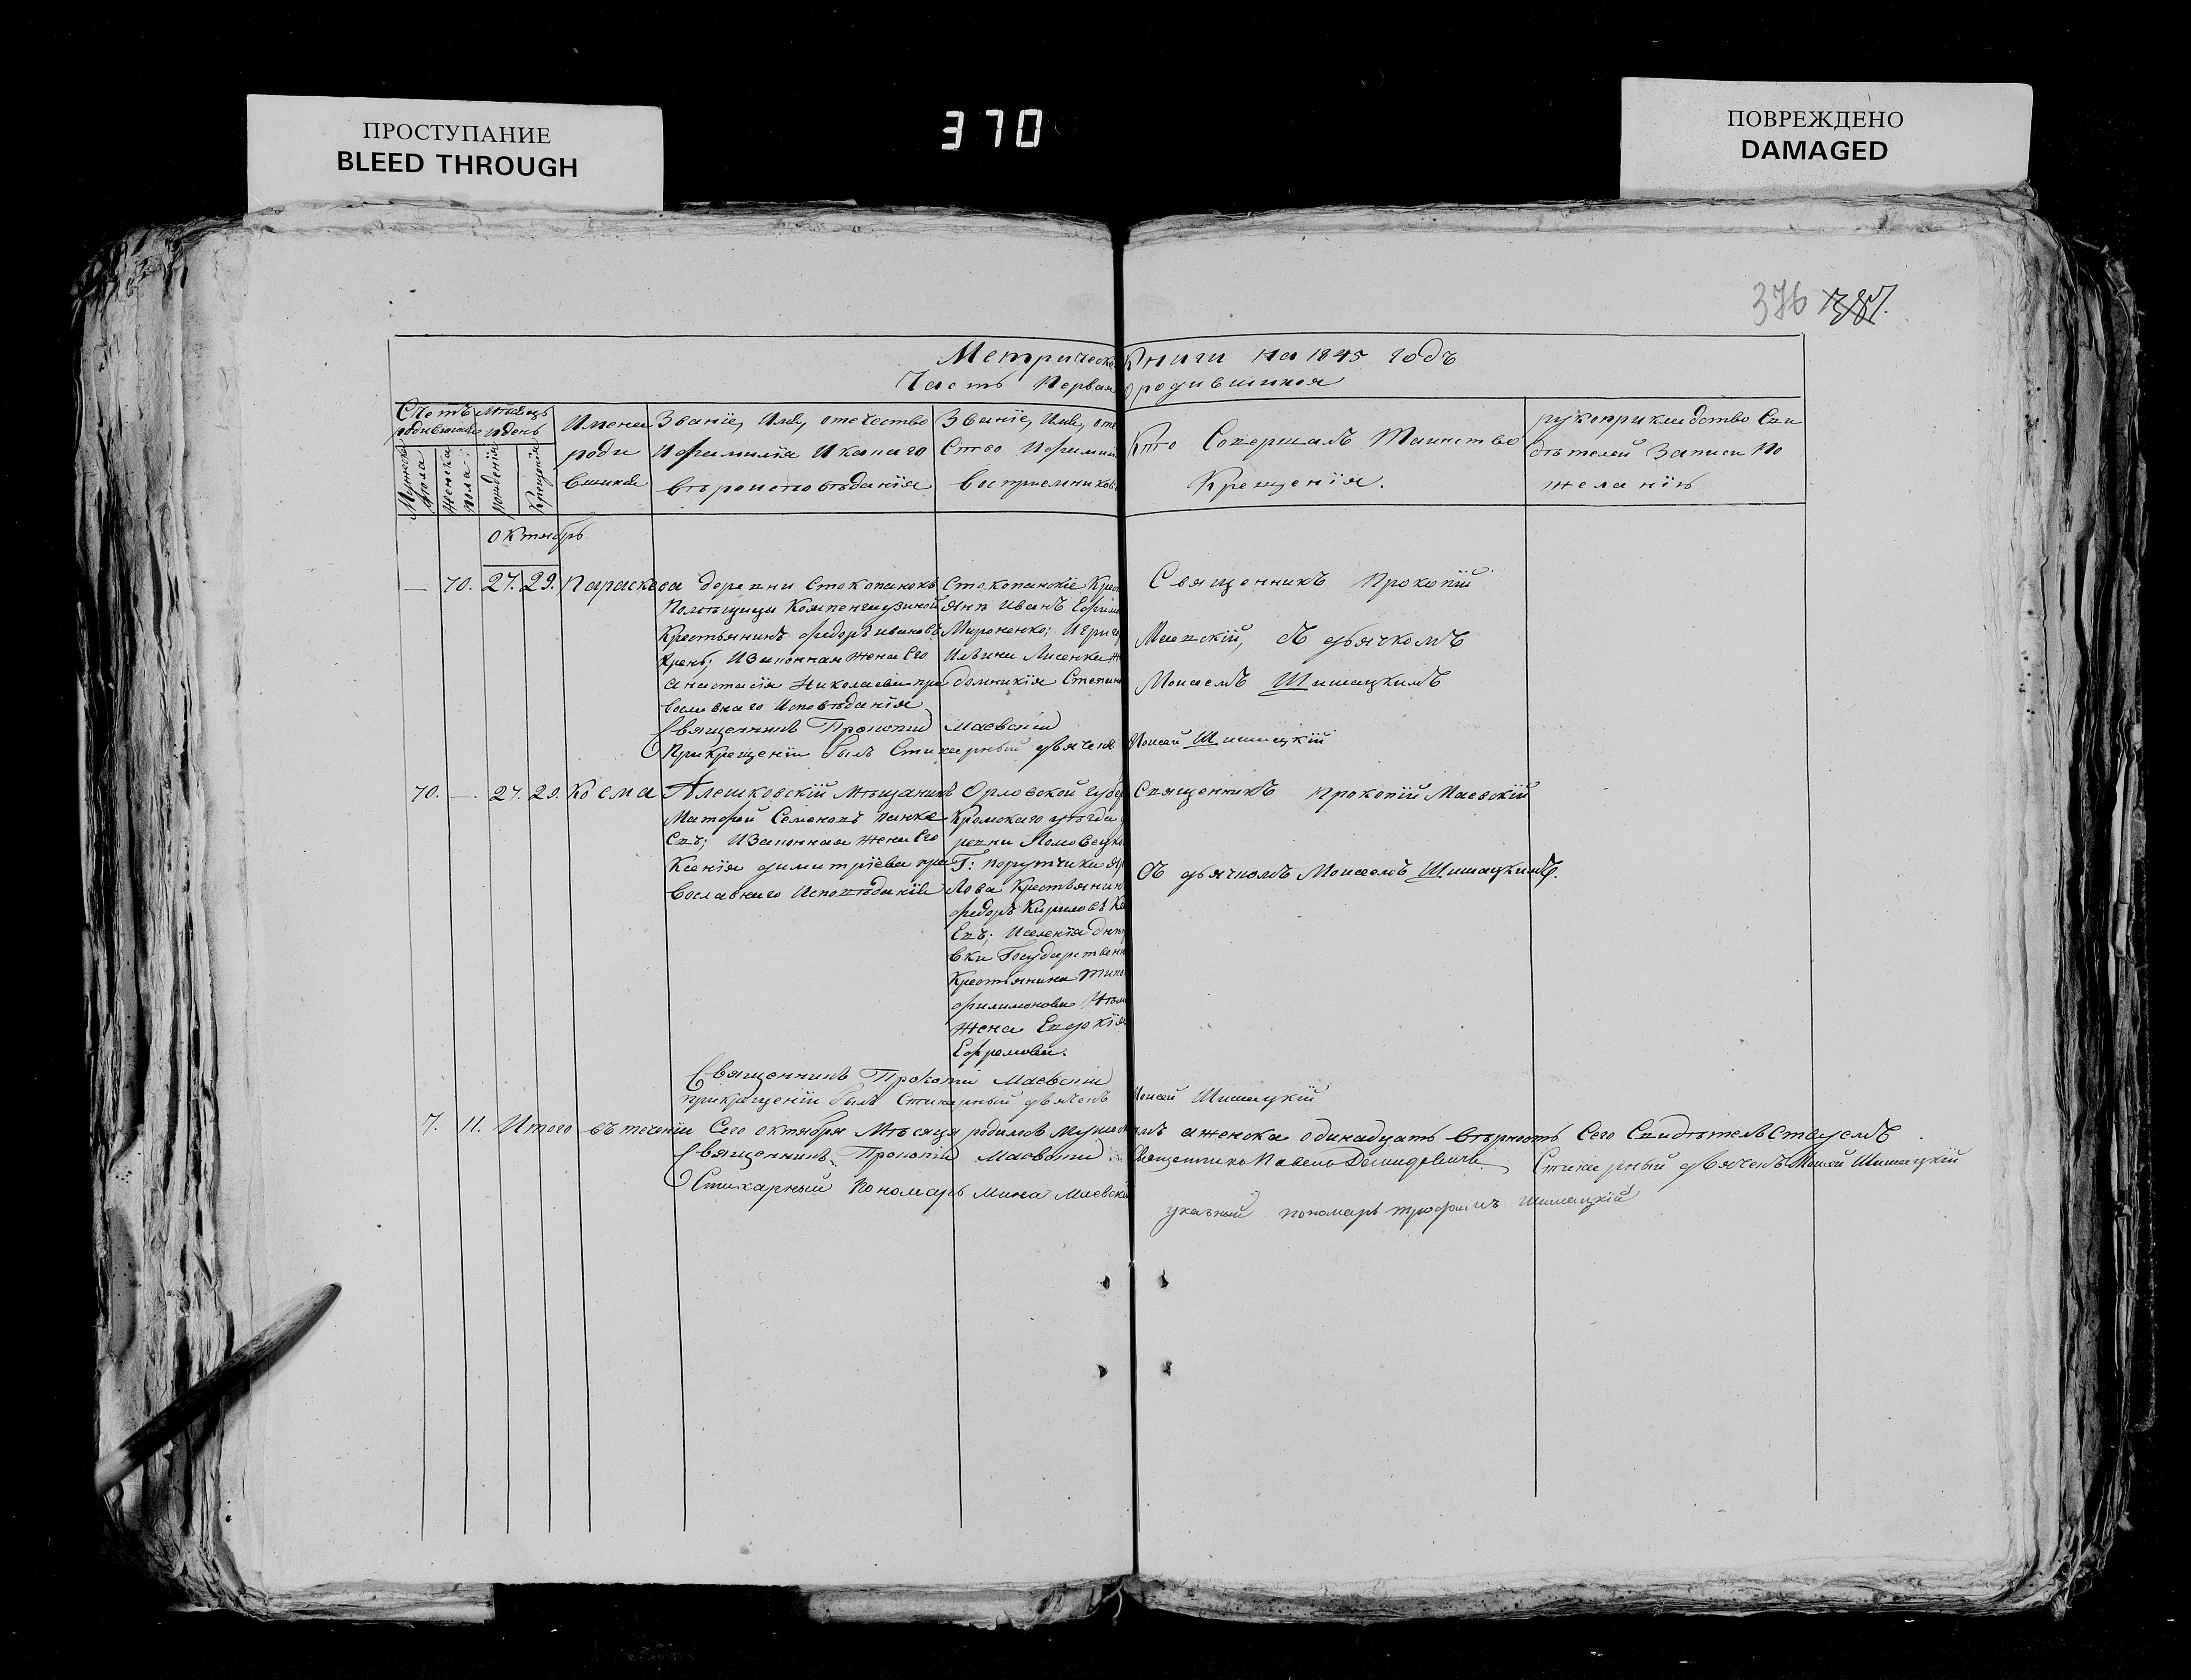 ПРОСТУПАНИЕ
BLEED THROUGH
370
ПОВРЕЖДЕНО
DAMAGED
376
Метрическо Книги на 1845 годъ
Часть Первая о родившихся
Счетъ родившихся
Мужеска пола
Женска пола
Мѣсяцъ и день
рожденія
Крещенія
Имена родившихся
Званіе, Имя, отечество
И фамилія И какаго
вѣроисповѣданія
Званіе, Имя, оте
Ство И фамил
воспріемниковъ
Кто Совершалъ Таинство
Крещенія.
рукоприкладство Сви
дѣтелей Записи По
желанію
октябрь
— 70. 27. 29. Параскева
деревни Стокопанокъ
Помѣщицы
Крестьянинъ Федоръ Ивановъ
Кренъ; И Законная жена Его
Анастасія Николаева пра
вославнаго Исповѣданія
Стокопанскіе Крес
яне Иванъ Ефимо
Мироненко; И Григо
Ильина Лисенка ж
Домникія Степан
Священникъ Прокопій
Маевскій, съ дьячкомъ
Моисеемъ Шишацкимъ
Священникъ Прокопій Маевскій
При крещеніи былъ Стихарный дьячекъ Моисей Шишацкій
70. — 27. 29. Косма
Алешковскій Мѣщанинъ
Матфей Семеновъ
Евъ; И Законная жена Его
Ксенія Димитріева пра
вославнаго Исповѣданія
Орловской губер
Кромскаго уѣзда
ревни
Г: порутчика
Лова Крестьянин
Федоръ Кириловъ
Евъ; И селенія
вки Государствен
Крестьянина
Филимонова
Жена Евдокія
Ефремова.
Священникъ Прокопій Маевскій
Съ дьячкомъ Моисеемъ Шишацкимъ.
Священникъ Прокопій Маевскій
При крещеніи былъ Стихарный дьячекъ Моисей Шишацкій
7. 11. Итого въ теченіи Сего октября Мѣсяца родилось а женска одинадцать вѣрность Сего Свидѣтельствуемъ
Священникъ Прокопій Маевскій Стихарный дьячекъ Моисей Шишацкій
Стихарный Пономарь Мина Маевскі
указный пономарь Трофимъ Шишацкій